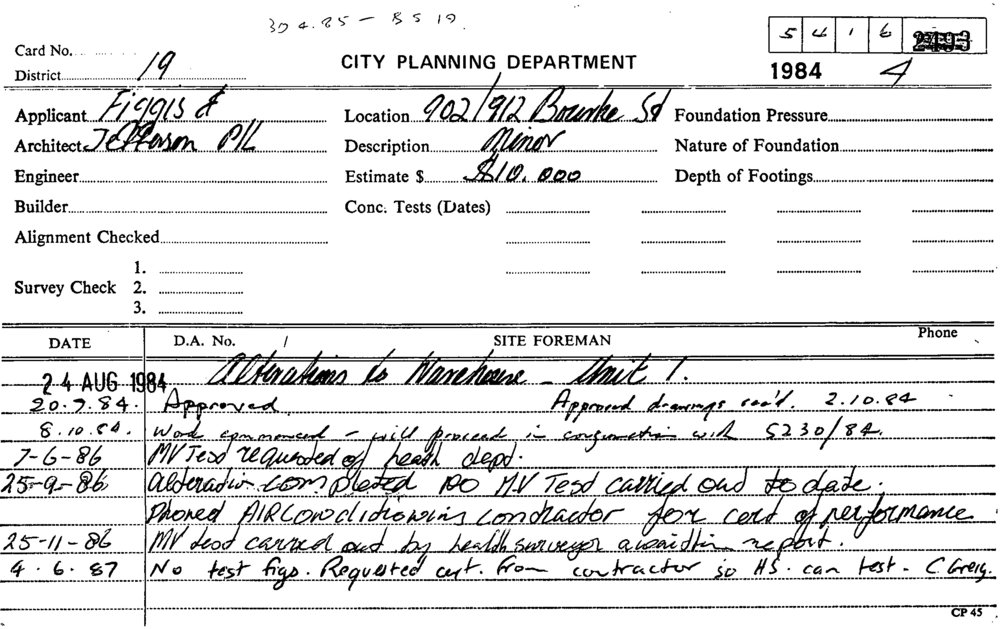 30 4.85 - BS 19
5 4 1 6 2403
Card No.
District 19
CITY PLANNING DEPARTMENT
1984 4
Applicant Figgis &
Location 902/912 Bourke St
Foundation Pressure
Architect Jefferson P/L
Description Minor
Nature of Foundation
Engineer
Estimate $ $10,000
Depth of Footings
Builder
Conc. Tests (Dates)
Alignment Checked
1.
Survey Check 2.
3.
DATE D.A. No. / SITE FOREMAN Phone
24 AUG 1984 Alterations to Warehouse - Unit 1.
20.9.84. Approved. Approved drawings rec'd. 2.10.84
8.10.84. Work commenced - will proceed in conjunction with 5230/84.
7-6-86 MV Test requested of heath dept.
25-9-86 alteration completed no MV Test carried out to date.
Phoned AIRCONDITIONING contractor for cert of performance
25-11-86 MV test carried out by health surveyor awaiting report.
4.6.87 No test figs. Requested cert. from contractor so HS. can test. C. Greig.
CP 45